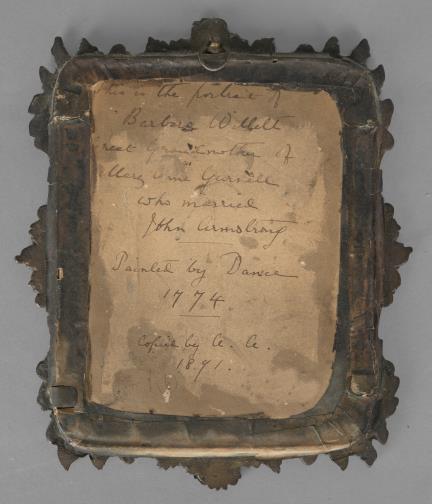 this is the portrait of
"Barbara Willett
Great Grandmother of
Mary Anne Gurnell"
who married
John Armstrong
Painted by Dance
1774.
Copied by A. A.
1891.